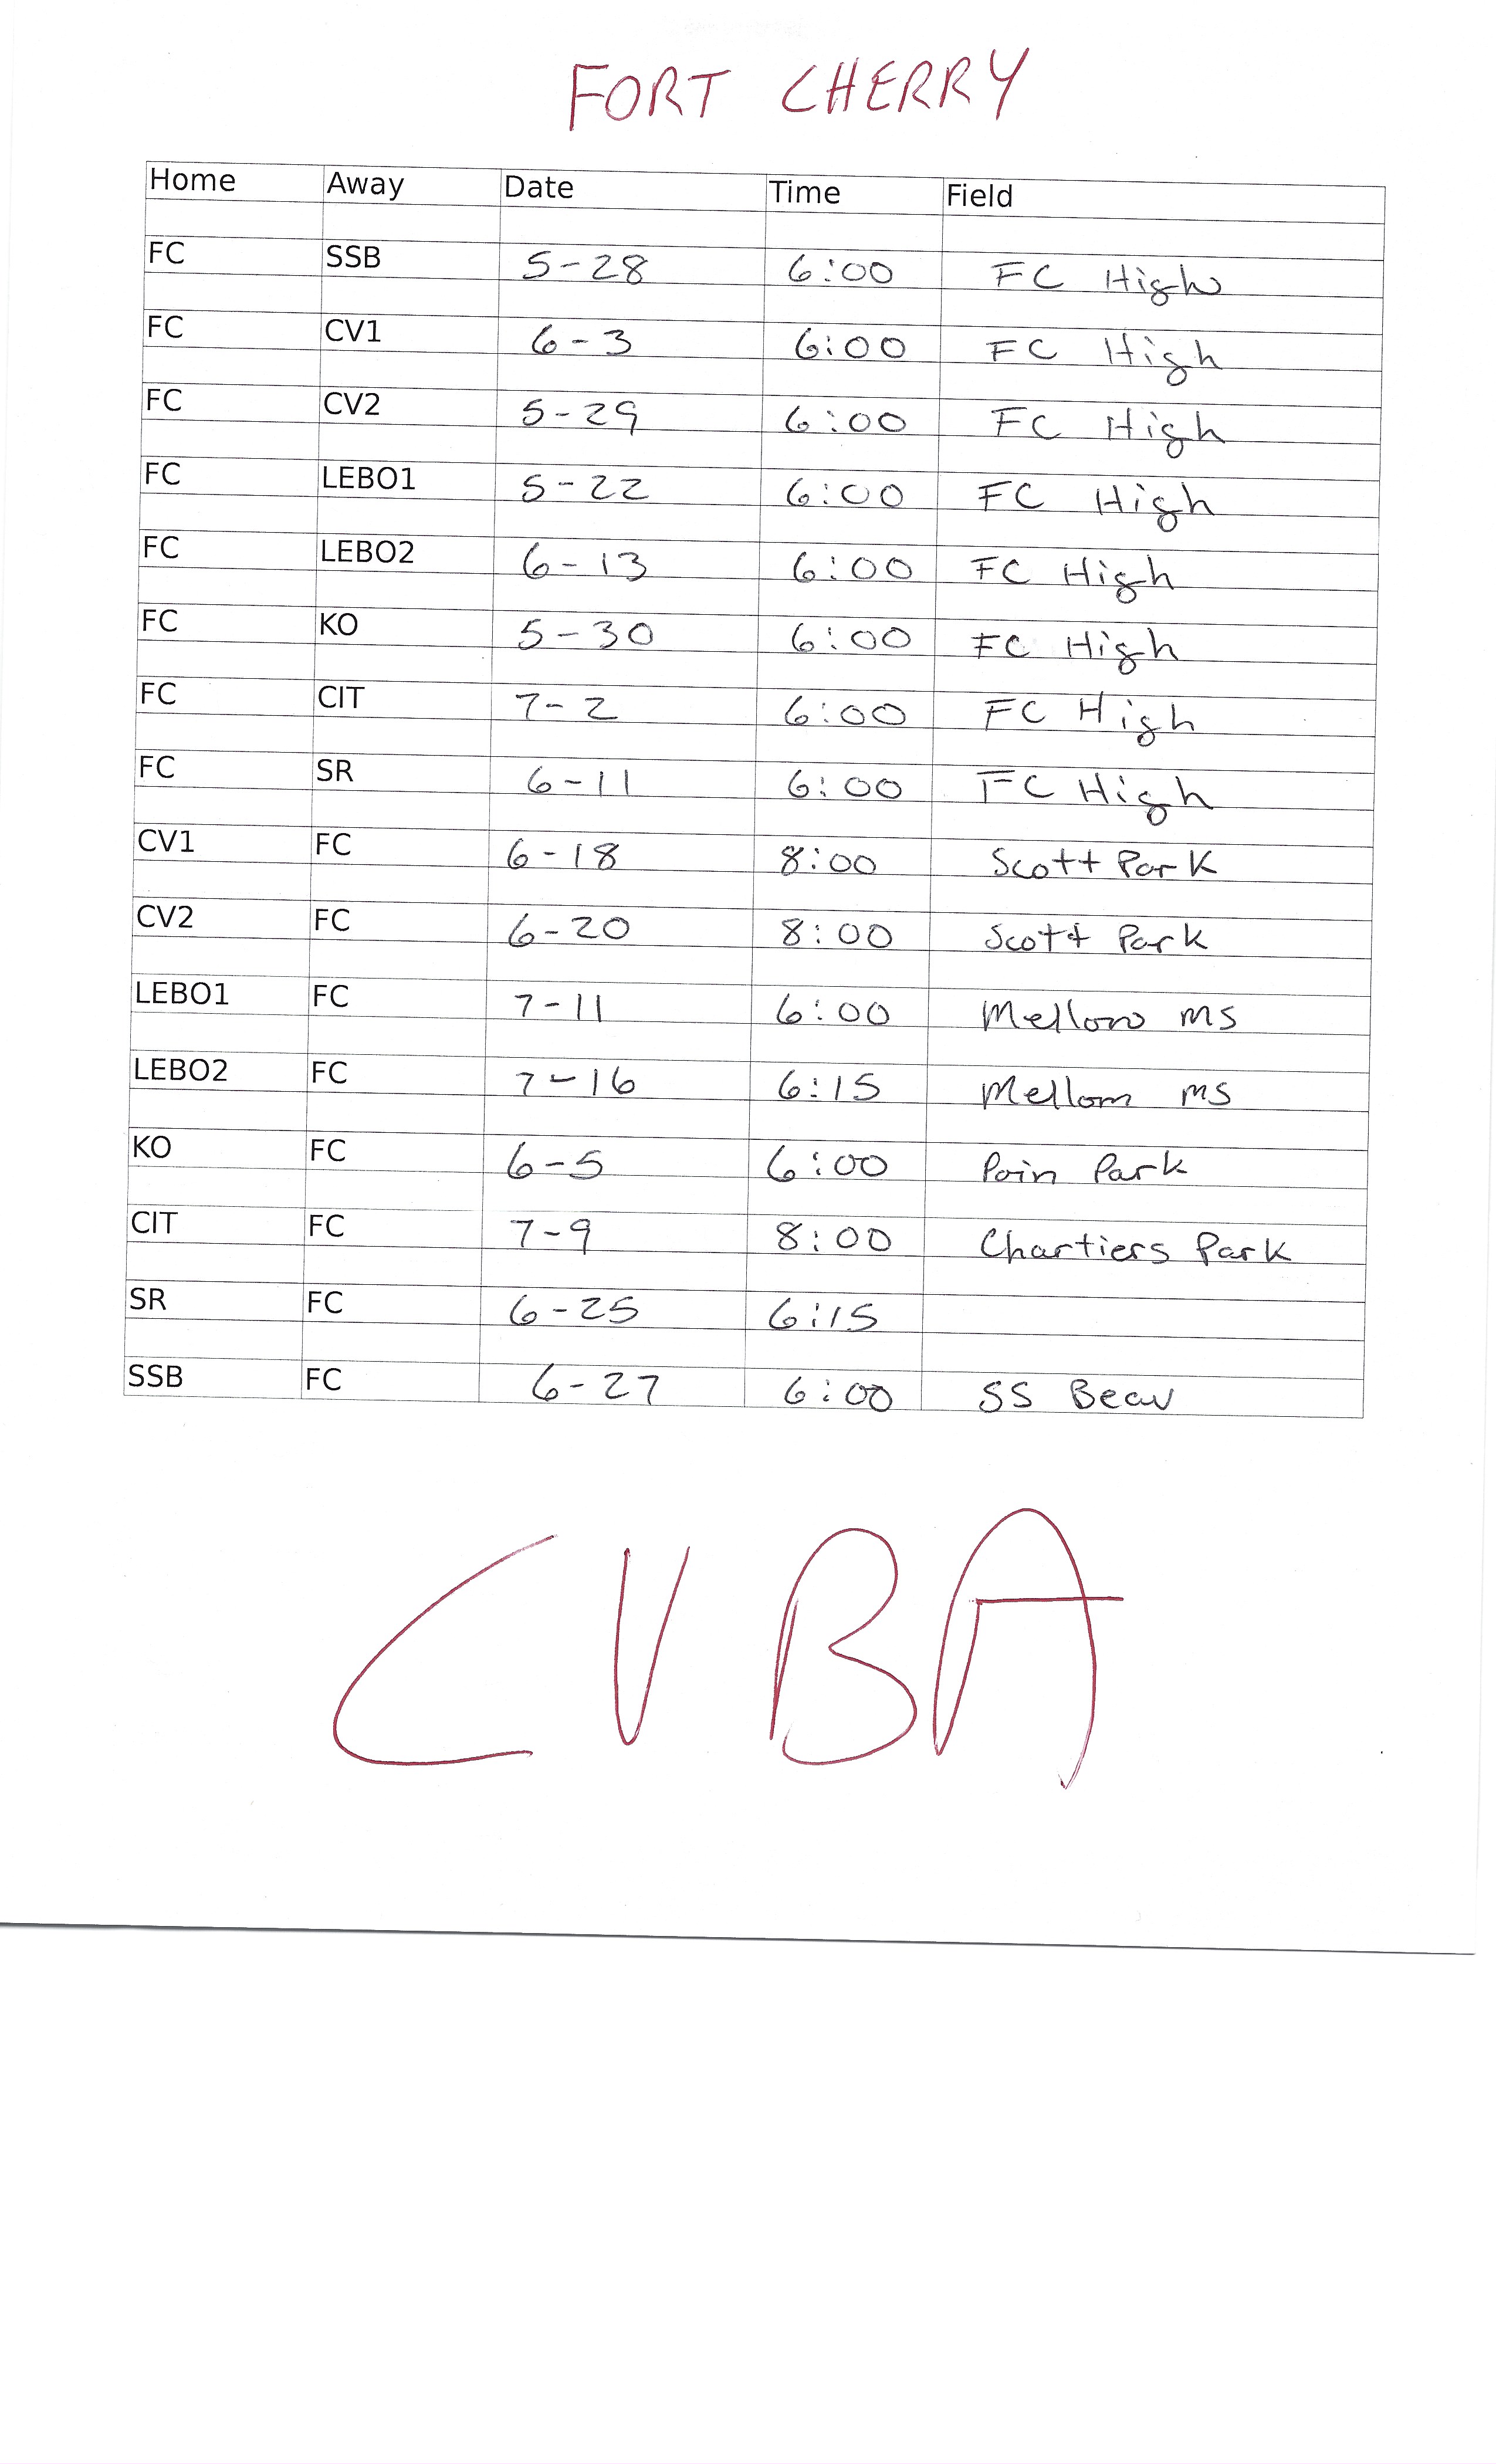 FORT CHERRY
Home Away Date Time Field
FC SSB 5-28 6:00 FC High
FC CV1 6-3 6:00 FC High
FC CV2 5-29 6:00 FC High
FC LEBO1 5-22 6:00 FC High
FC LEBO2 6-13 6:00 FC High
FC KO 5-30 6:00 FC High
FC CIT 7-2 6:00 FC High
FC SR 6-11 6:00 FC High
CV1 FC 6-18 8:00 Scott Park
CV2 FC 6-20 8:00 Scott Park
LEBO1 FC 7-11 6:00 Mellon MS
LEBO2 FC 7-16 6:15 Mellon MS
KO FC 6-5 6:00 Poin Park
CIT FC 7-9 8:00 Chartiers Park
SR FC 6-25 6:15
SSB FC 6-27 6:00 SS Beav
CVBA